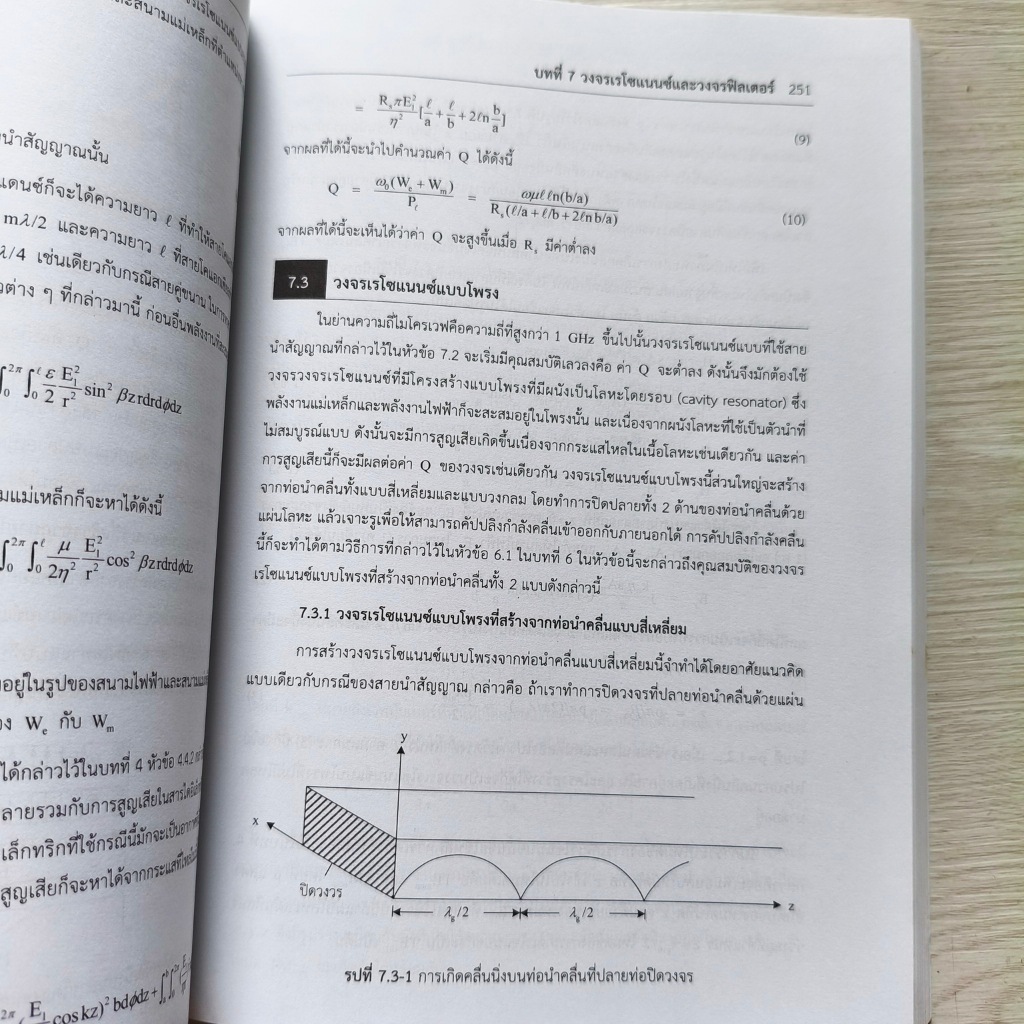 นำสัญญาณนั้น
แดนซ์ก็จะได้ความยาว ℓ ที่ทำให้สาย
mλ/2 และความยาว ℓ ที่สายโคแอก
λ/4 เช่นเดียวกับกรณีสายคู่ขนาน
ต่าง ๆ ที่กล่าวมานี้ ก่อนอื่นพลังงาน
∫₀^2π ∫₀^ℓ ε/2 E₁²/r² sin² βz rdrdϕdz
มแม่เหล็กก็จะหาได้ดังนี้
∫₀^2π ∫₀^ℓ μ/2η² E₁²/r² cos² βz rdrdϕdz
อยู่ในรูปของสนามไฟฟ้าและสนามแม่
W_e กับ W_m
ได้กล่าวไว้ในบทที่ 4 หัวข้อ 4.4.2
ลายรวมกับการสูญเสียในสารไดอิเล็ก
เล็กทริกที่ใช้กรณีนี้มักจะเป็นอากาศ
สูญเสียก็จะหาได้จากกระแสที่ไหล
(E₁/ cos kz)² bdϕdz +
บทที่ 7 วงจรเรโซแนนซ์และวงจรฟิลเตอร์ 251
= R_sπE₁²/η² [ℓ/a + ℓ/b + 2ℓn b/a] (9)
จากผลที่ได้นี้จะนำไปคำนวณค่า Q ได้ดังนี้
Q = ω₀(W_e + W_m)/P_ℓ = ωμℓ ℓn(b/a)/R_s(ℓ/a + ℓ/b + 2ℓn b/a) (10)
จากผลที่ได้นี้จะเห็นได้ว่าค่า Q จะสูงขึ้นเมื่อ R_s มีค่าต่ำลง
7.3 วงจรเรโซแนนซ์แบบโพรง
ในย่านความถี่ไมโครเวฟคือความถี่ที่สูงกว่า 1 GHz ขึ้นไปนั้นวงจรเรโซแนนซ์แบบที่ใช้สาย
นำสัญญาณที่กล่าวไว้ในหัวข้อ 7.2 จะเริ่มมีคุณสมบัติเลวลงคือ ค่า Q จะต่ำลง ดังนั้นจึงมักต้องใช้
วงจรวงจรเรโซแนนซ์ที่มีโครงสร้างแบบโพรงที่มีผนังเป็นโลหะโดยรอบ (cavity resonator) ซึ่ง
พลังงานแม่เหล็กและพลังงานไฟฟ้าก็จะสะสมอยู่ในโพรงนั้น และเนื่องจากผนังโลหะที่ใช้เป็นตัวนำที่
ไม่สมบูรณ์แบบ ดังนั้นจะมีการสูญเสียเกิดขึ้นเนื่องจากกระแสไหลในเนื้อโลหะเช่นเดียวกัน และค่า
การสูญเสียนี้ก็จะมีผลต่อค่า Q ของวงจรเช่นเดียวกัน วงจรเรโซแนนซ์แบบโพรงนี้ส่วนใหญ่จะสร้าง
จากท่อนำคลื่นทั้งแบบสี่เหลี่ยมและแบบวงกลม โดยทำการปิดปลายทั้ง 2 ด้านของท่อนำคลื่นด้วย
แผ่นโลหะ แล้วเจาะรูเพื่อให้สามารถคัปปลิงกำลังคลื่นเข้าออกกับภายนอกได้ การคัปปลิงกำลังคลื่น
นี้ก็จะทำได้ตามวิธีการที่กล่าวไว้ในหัวข้อ 6.1 ในบทที่ 6 ในหัวข้อนี้จะกล่าวถึงคุณสมบัติของวงจร
เรโซแนนซ์แบบโพรงที่สร้างจากท่อนำคลื่นทั้ง 2 แบบดังกล่าวนี้
7.3.1 วงจรเรโซแนนซ์แบบโพรงที่สร้างจากท่อนำคลื่นแบบสี่เหลี่ยม
การสร้างวงจรเรโซแนนซ์แบบโพรงจากท่อนำคลื่นแบบสี่เหลี่ยมนี้จำทำได้โดยอาศัยแนวคิด
แบบเดียวกับกรณีของสายนำสัญญาณ กล่าวคือ ถ้าเราทำการปิดวงจรที่ปลายท่อนำคลื่นด้วยแผ่น
y
x
ปิดวงวร
z
λ_g/2 λ_g/2
รปที่ 7.3-1 การเกิดคลื่นนิ่งบนท่อนำคลื่นที่ปลายท่อปิดวงจร